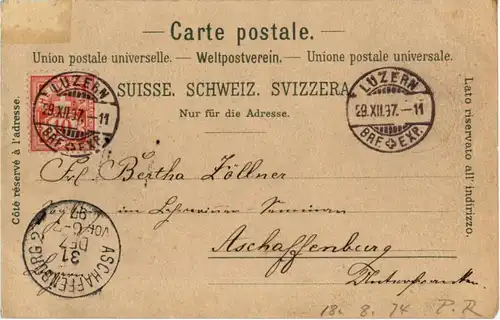 Carte postale.
Union postale universelle. — Weltpostverein. — Unione postale universale.
SUISSE. SCHWEIZ. SVIZZERA.
Nur für die Adresse.
Côté réservé à l'adresse.
Lato riservato all' indirizzo.
LUZERN
29.XII.97.-11
BRF. EXP.
LUZERN
29.XII.97.-11
BRF. EXP.
Frl. Bertha Zöllner
im Lehrerinnen-Seminar
Aschaffenburg
Unterfranken
ASCHAFFENBURG 2
31
DEZ
VOR 6-7
97
18. 8. 74 P. R